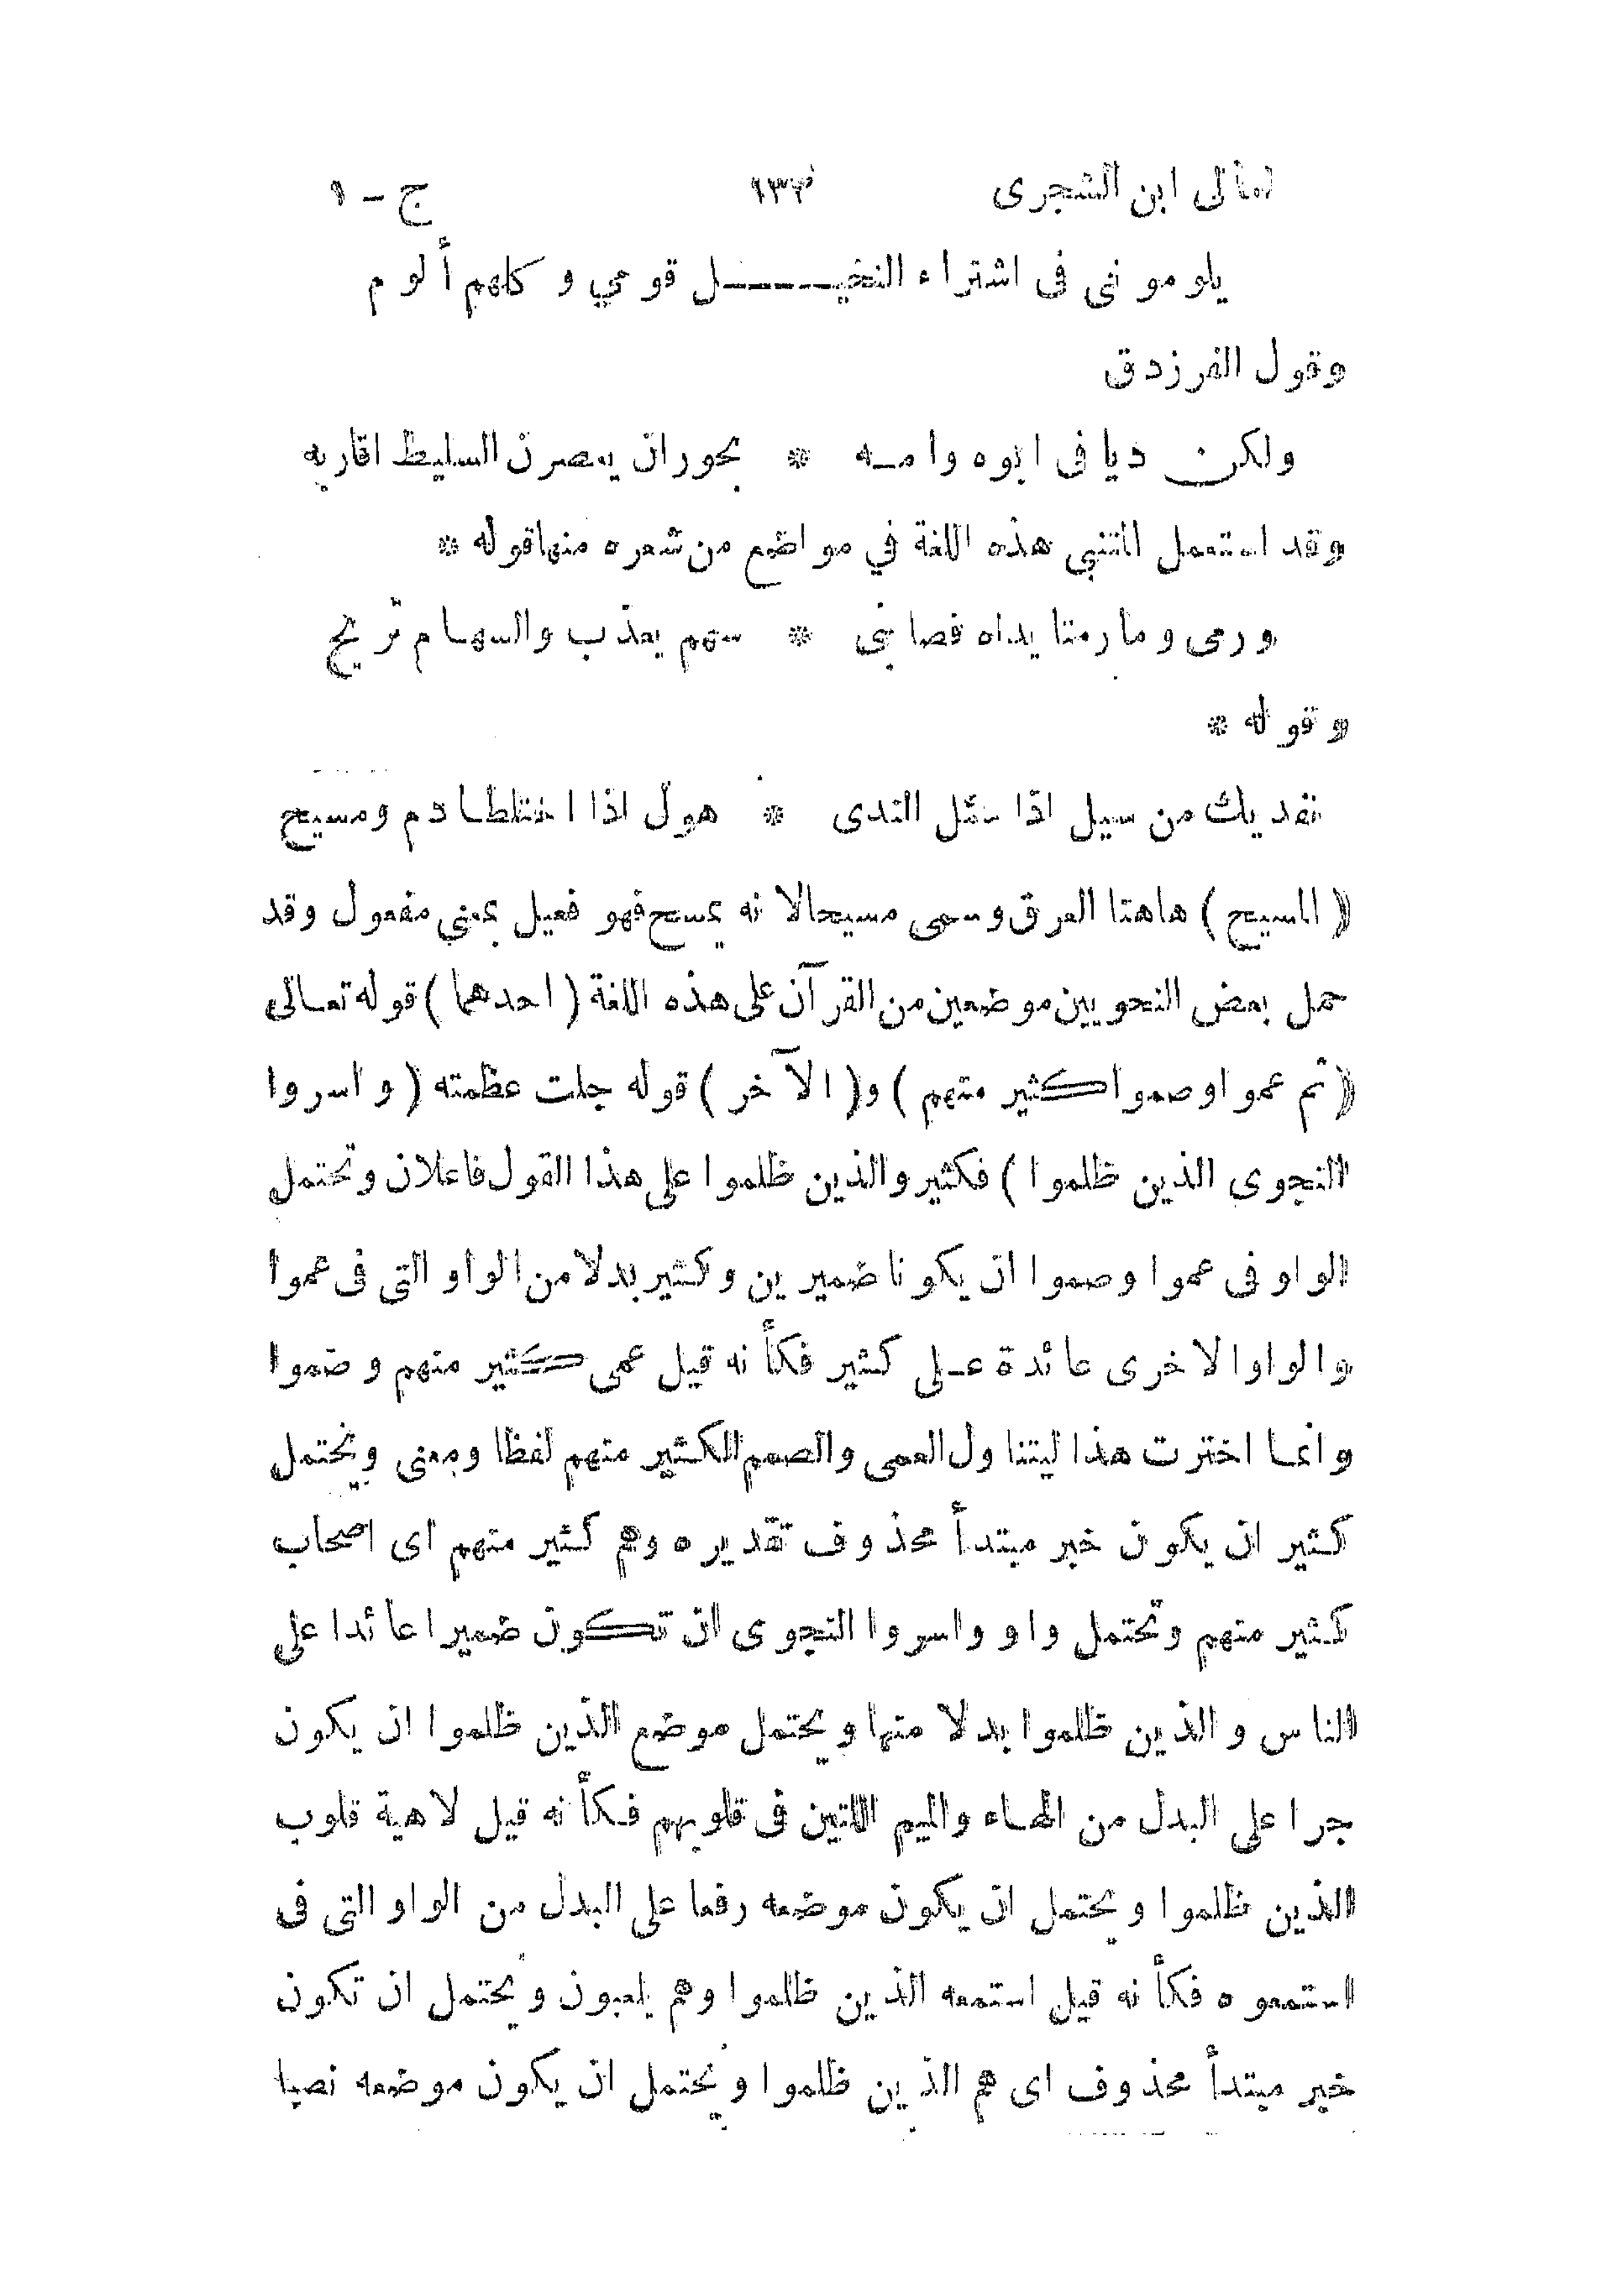 امالى ابن الشجرى ١٣٣ ج - ١
يلومونى فى اشتراء النخيـــــل قومي وكلهم ألوم
وقول الفرزدق
ولكن ديافى ابوه وامـه * بحوران يعصرن السليط اقاربه
وقد استعمل المتنبى هذه اللغة في مواضع من شعره منها قوله *
ورمى وما رمتا يداه فصابنى * سهم يعذب والسهام تريح
وقوله *
نفديك من سيل اذا سئل الندى * هول اذا اختلطا دم ومسيح
( المسيح ) هاهنا العرق وسمى مسيحا لانه يمسح فهو فعيل بمعني مفعول وقد
حمل بعض النحويين موضعين من القرآن على هذه اللغة ( احدهما ) قوله تعالى
( ثم عموا وصموا كثير منهم ) و( الآخر ) قوله جلت عظمته ( واسروا
النجوى الذين ظلموا ) فكثير والذين ظلموا على هذا القول فاعلان وتحتمل
الواو فى عموا وصموا ان يكونا ضميرين وكثير بدلا من الواو التى فى عموا
والواو الاخرى عائدة على كثير فكأنه قيل عمى كثير منهم وضموا
وانما اخترت هذا ليتناول العمى والصمم الكثير منهم لفظا ومعنى ويحتمل
كثير ان يكون خبر مبتدأ محذوف تقديره وهم كثير منهم اى اصحاب
كثير منهم وتحتمل واو واسروا النجوى ان تكون ضميرا عائدا على
الناس والذين ظلموا بدلا منها ويحتمل موضع الذين ظلموا ان يكون
جرا على البدل من الهاء والميم اللتين فى قلوبهم فكأنه قيل لاهية قلوب
الذين ظلموا ويحتمل ان يكون موضعه رفعا على البدل من الواو التى فى
استمعوه فكأنه قيل استمعه الذين ظلموا وهم يلعبون ويحتمل ان تكون
خبر مبتدأ محذوف اى هم الذين ظلموا ويحتمل ان يكون موضعه نصبا